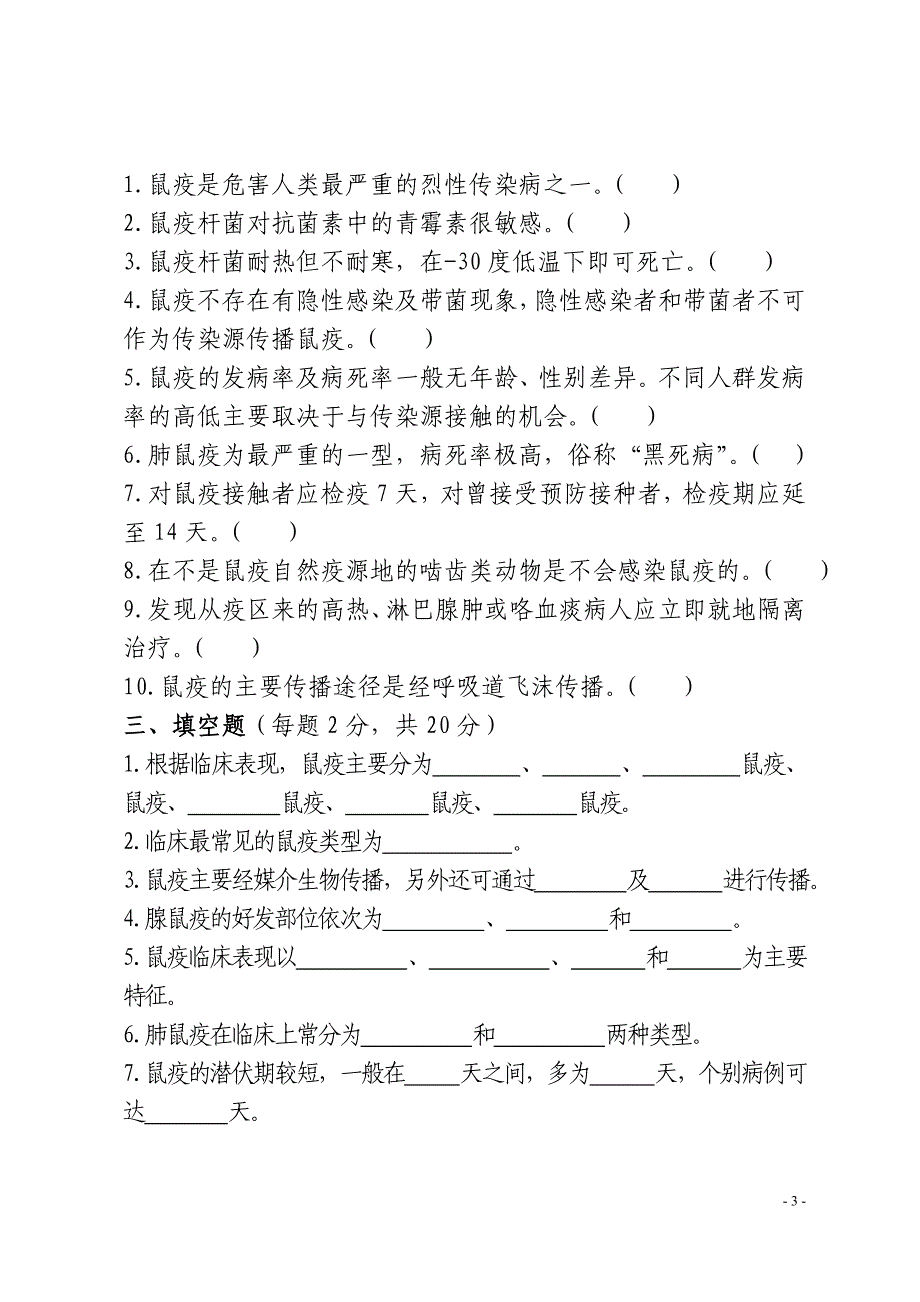 1.鼠疫是危害人类最严重的烈性传染病之一。(　　)
2.鼠疫杆菌对抗菌素中的青霉素很敏感。(　　)
3.鼠疫杆菌耐热但不耐寒，在-30度低温下即可死亡。(　　)
4.鼠疫不存在有隐性感染及带菌现象，隐性感染者和带菌者不可
作为传染源传播鼠疫。(　　)
5.鼠疫的发病率及病死率一般无年龄、性别差异。不同人群发病
率的高低主要取决于与传染源接触的机会。(　　)
6.肺鼠疫为最严重的一型，病死率极高，俗称“黑死病”。(　　)
7.对鼠疫接触者应检疫7天，对曾接受预防接种者，检疫期应延
至14天。(　　)
8.在不是鼠疫自然疫源地的啮齿类动物是不会感染鼠疫的。(　　)
9.发现从疫区来的高热、淋巴腺肿或咯血痰病人应立即就地隔离
治疗。(　　)
10.鼠疫的主要传播途径是经呼吸道飞沫传播。(　　)
三、填空题（每题2分，共20分）
1.根据临床表现，鼠疫主要分为________、_______、_________鼠疫、
鼠疫、________鼠疫、_______鼠疫、_______鼠疫。
2.临床最常见的鼠疫类型为____________。
3.鼠疫主要经媒介生物传播，另外还可通过________及_______进行传播。
4.腺鼠疫的好发部位依次为_________、_________和_________。
5.鼠疫临床表现以__________、___________、_______和_______为主要
特征。
6.肺鼠疫在临床上常分为__________和__________两种类型。
7.鼠疫的潜伏期较短，一般在_____天之间，多为______天，个别病例可
达_______天。
- 3 -